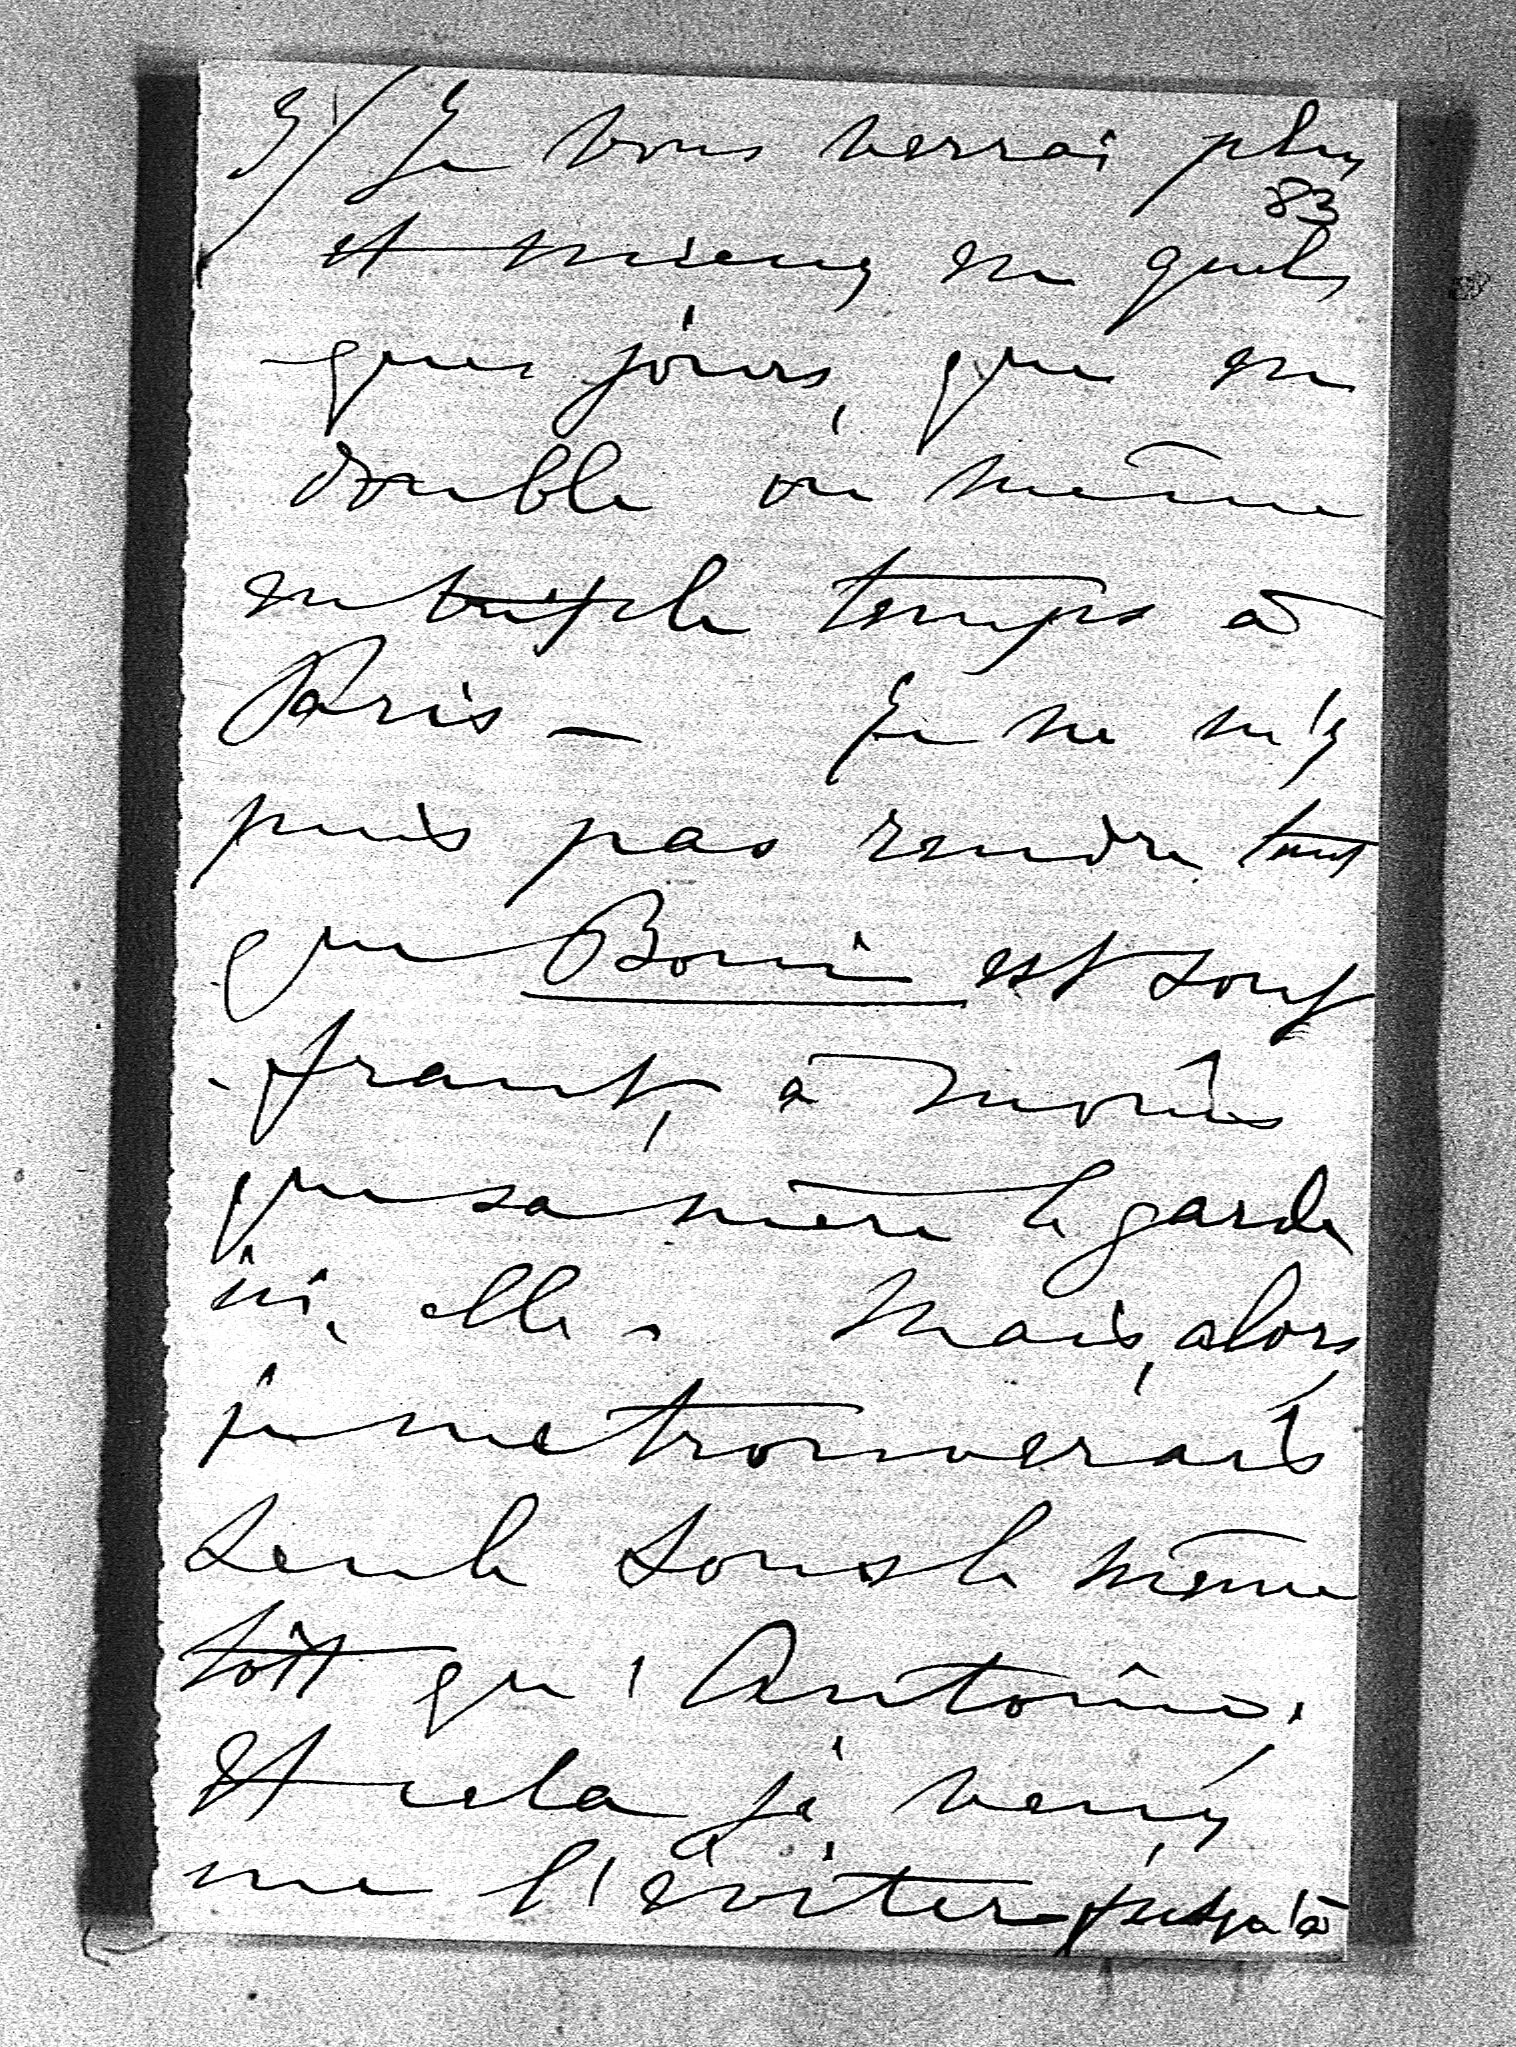 3/ Je vous verrai plus
83
et mieux en quel-
ques jours, que en
double ou même
en triple temps à
Paris — Je ne m'y
puis pas rendre tant
que Boni est souf
-frant, à moins
que sa mère le garde
ici, elle. Mais, alors
je me trouverais
seule sous le même
toît qu'Antoine.
Et cela je veux,
me l'éviter, jusqu'à